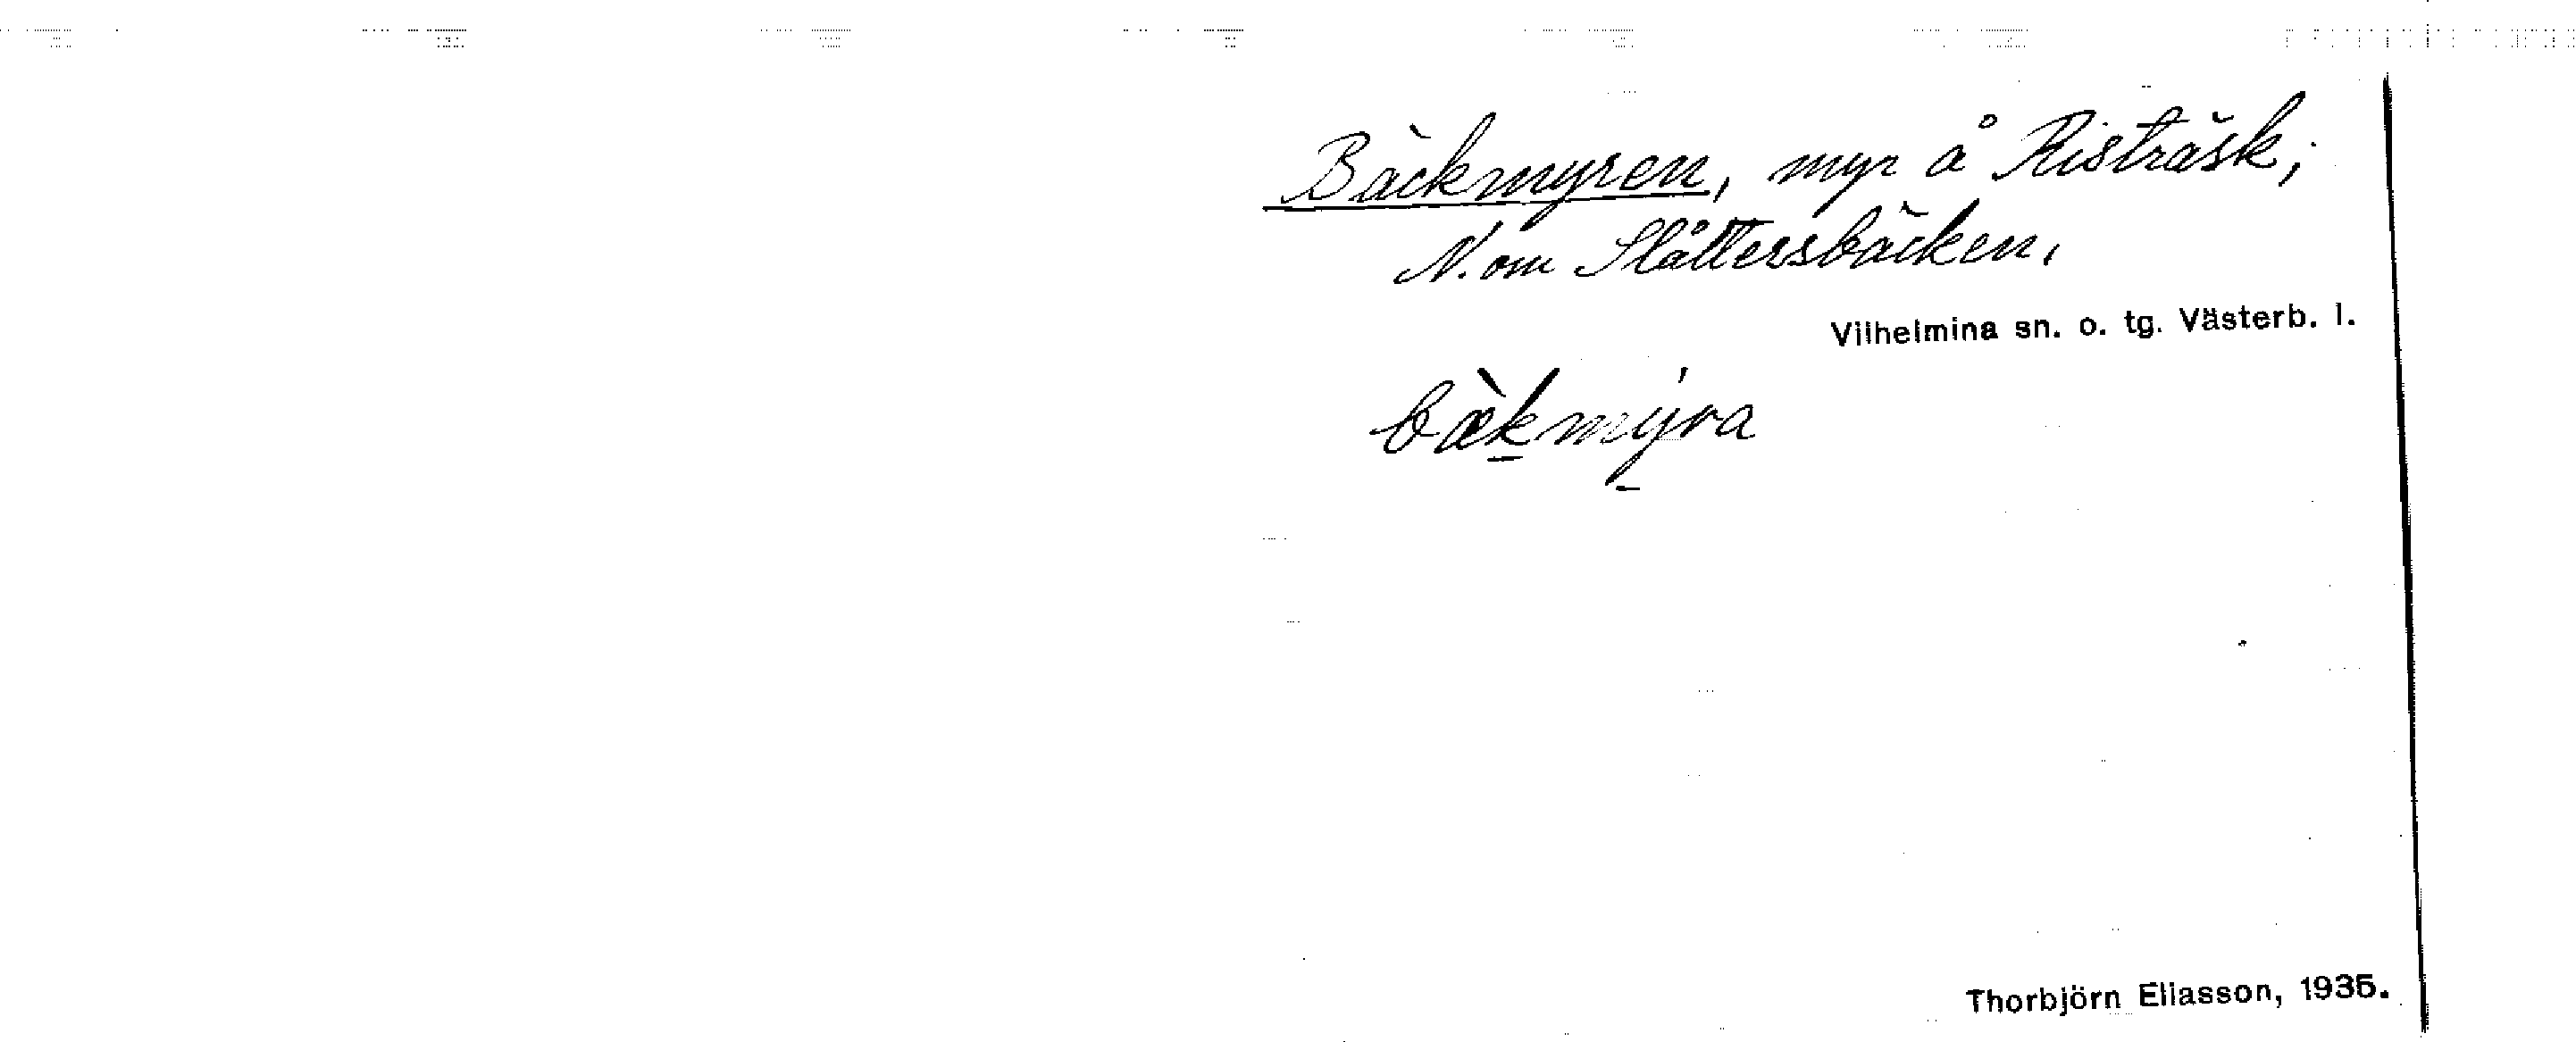 Bäckmyren, myr å Risträsk;
N. om Slåttersbäcken,
Vilhelmina sn. o. tg. Västerb. l.
bæ̀kmýra
Thorbjörn Eliasson, 1935.